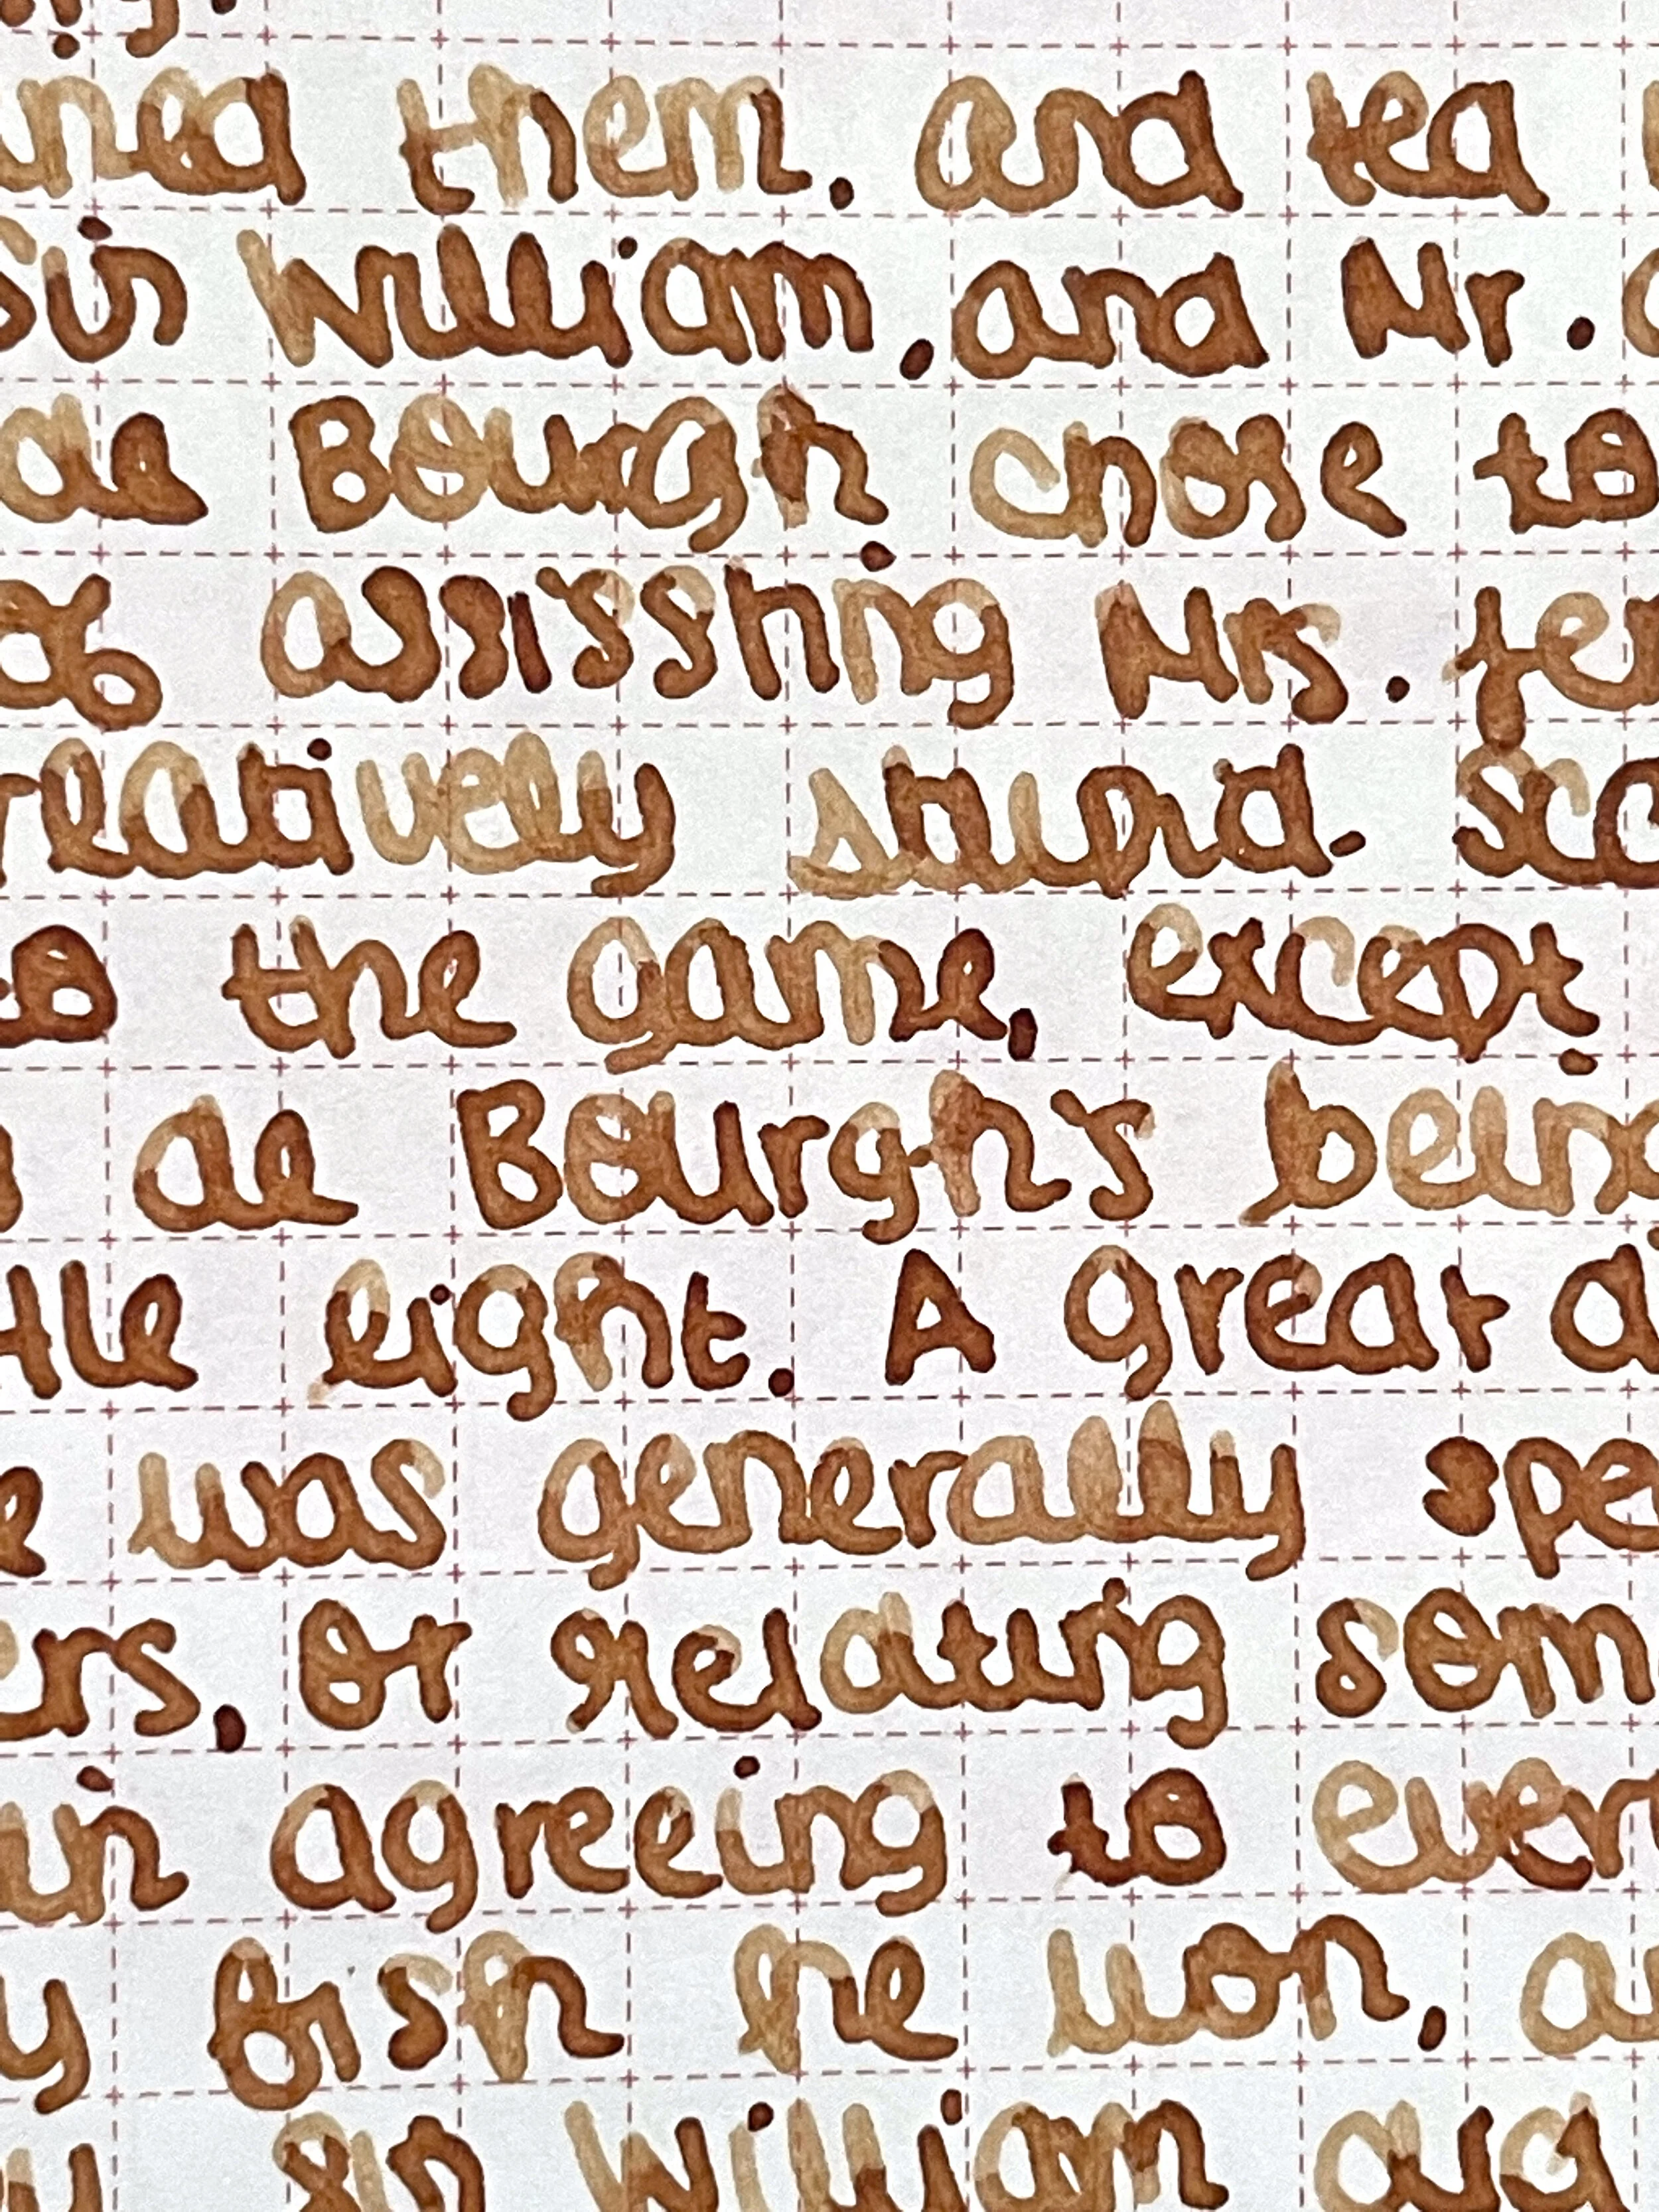 ined them. and tea
Sir William, and Mr.
de Bourgh chose to
of assissting Mrs. Jen
relatively stupid. Sc
to the game, except
de Bourgh's being
ttle light. A great d
e was generally spe
ers, or relating som
in agreeing to ever
y fish he won, a
Sir William did